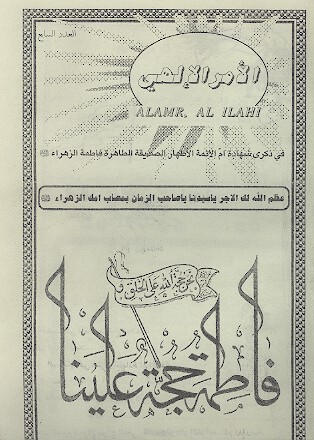 العدد السابع
الأمر الإلهي
ALAMR, AL ILAHI
في ذكرى شهادة ام الأئمة الأطهار الصديقة الطاهرة فاطمة الزهراء
عظم الله لك الاجر ياسيدنا ياصاحب الزمان بمصاب امك الزهراء
نحن حجة الله على الخلق و
فاطمة حجة علينا